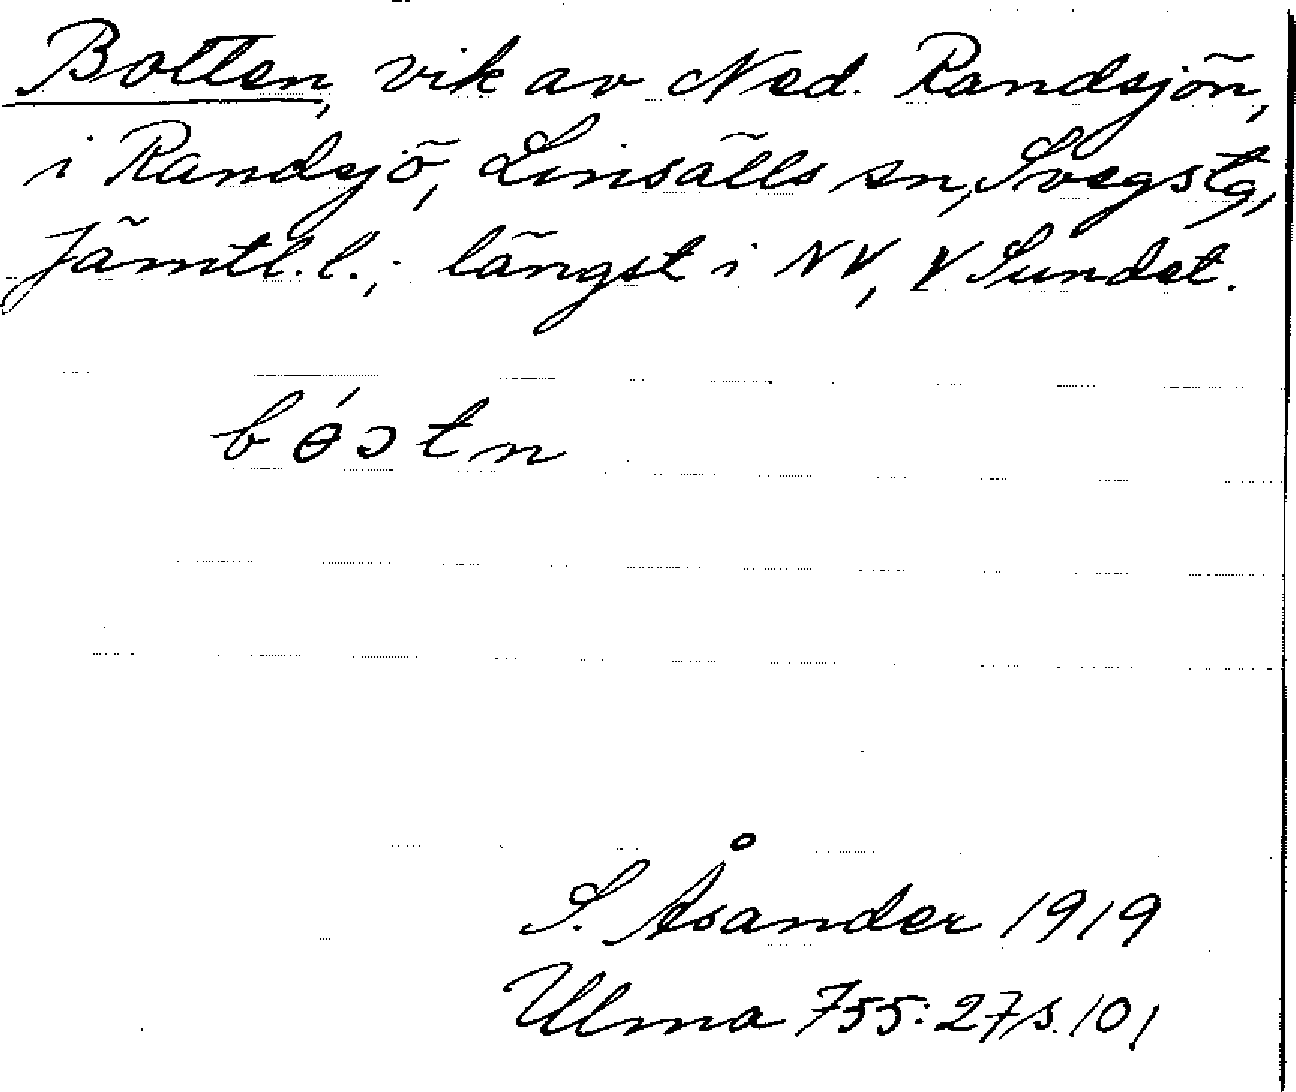 Botten, vik av Ned. Randsjön,
i Randsjö, Linsälls sn, Svegs tg,
Jämtl. l.; längst i NV, V Sundet.
bɵ́ɔtn
S. Åsander 1919
Ulma 755:27 s. 101